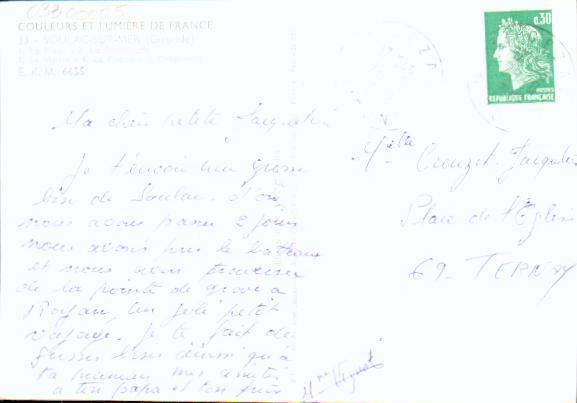 0330005
COULEURS ET LUMIÈRE DE FRANCE
33 - SOULAC-SUR-MER (Gironde)
E. K. M. 6635
0,30
POSTES
REPUBLIQUE FRANÇAISE
Ma chère petite Jacqueline
Je t'envoie une grosse
bise de Soulac. D'où
nous avons passé 2 jours
nous avons pris le bateau
et nous avons traversé
de la pointe de grave a
Royan, un joli petit
voyage. Je te fait de
grosses bises ainsi qu'à
ta maman mes amitiés
a ton papa et ton frère
Mme
Melle Creuzet Jacqueline
Place de l'Eglise
69 - TERNAY